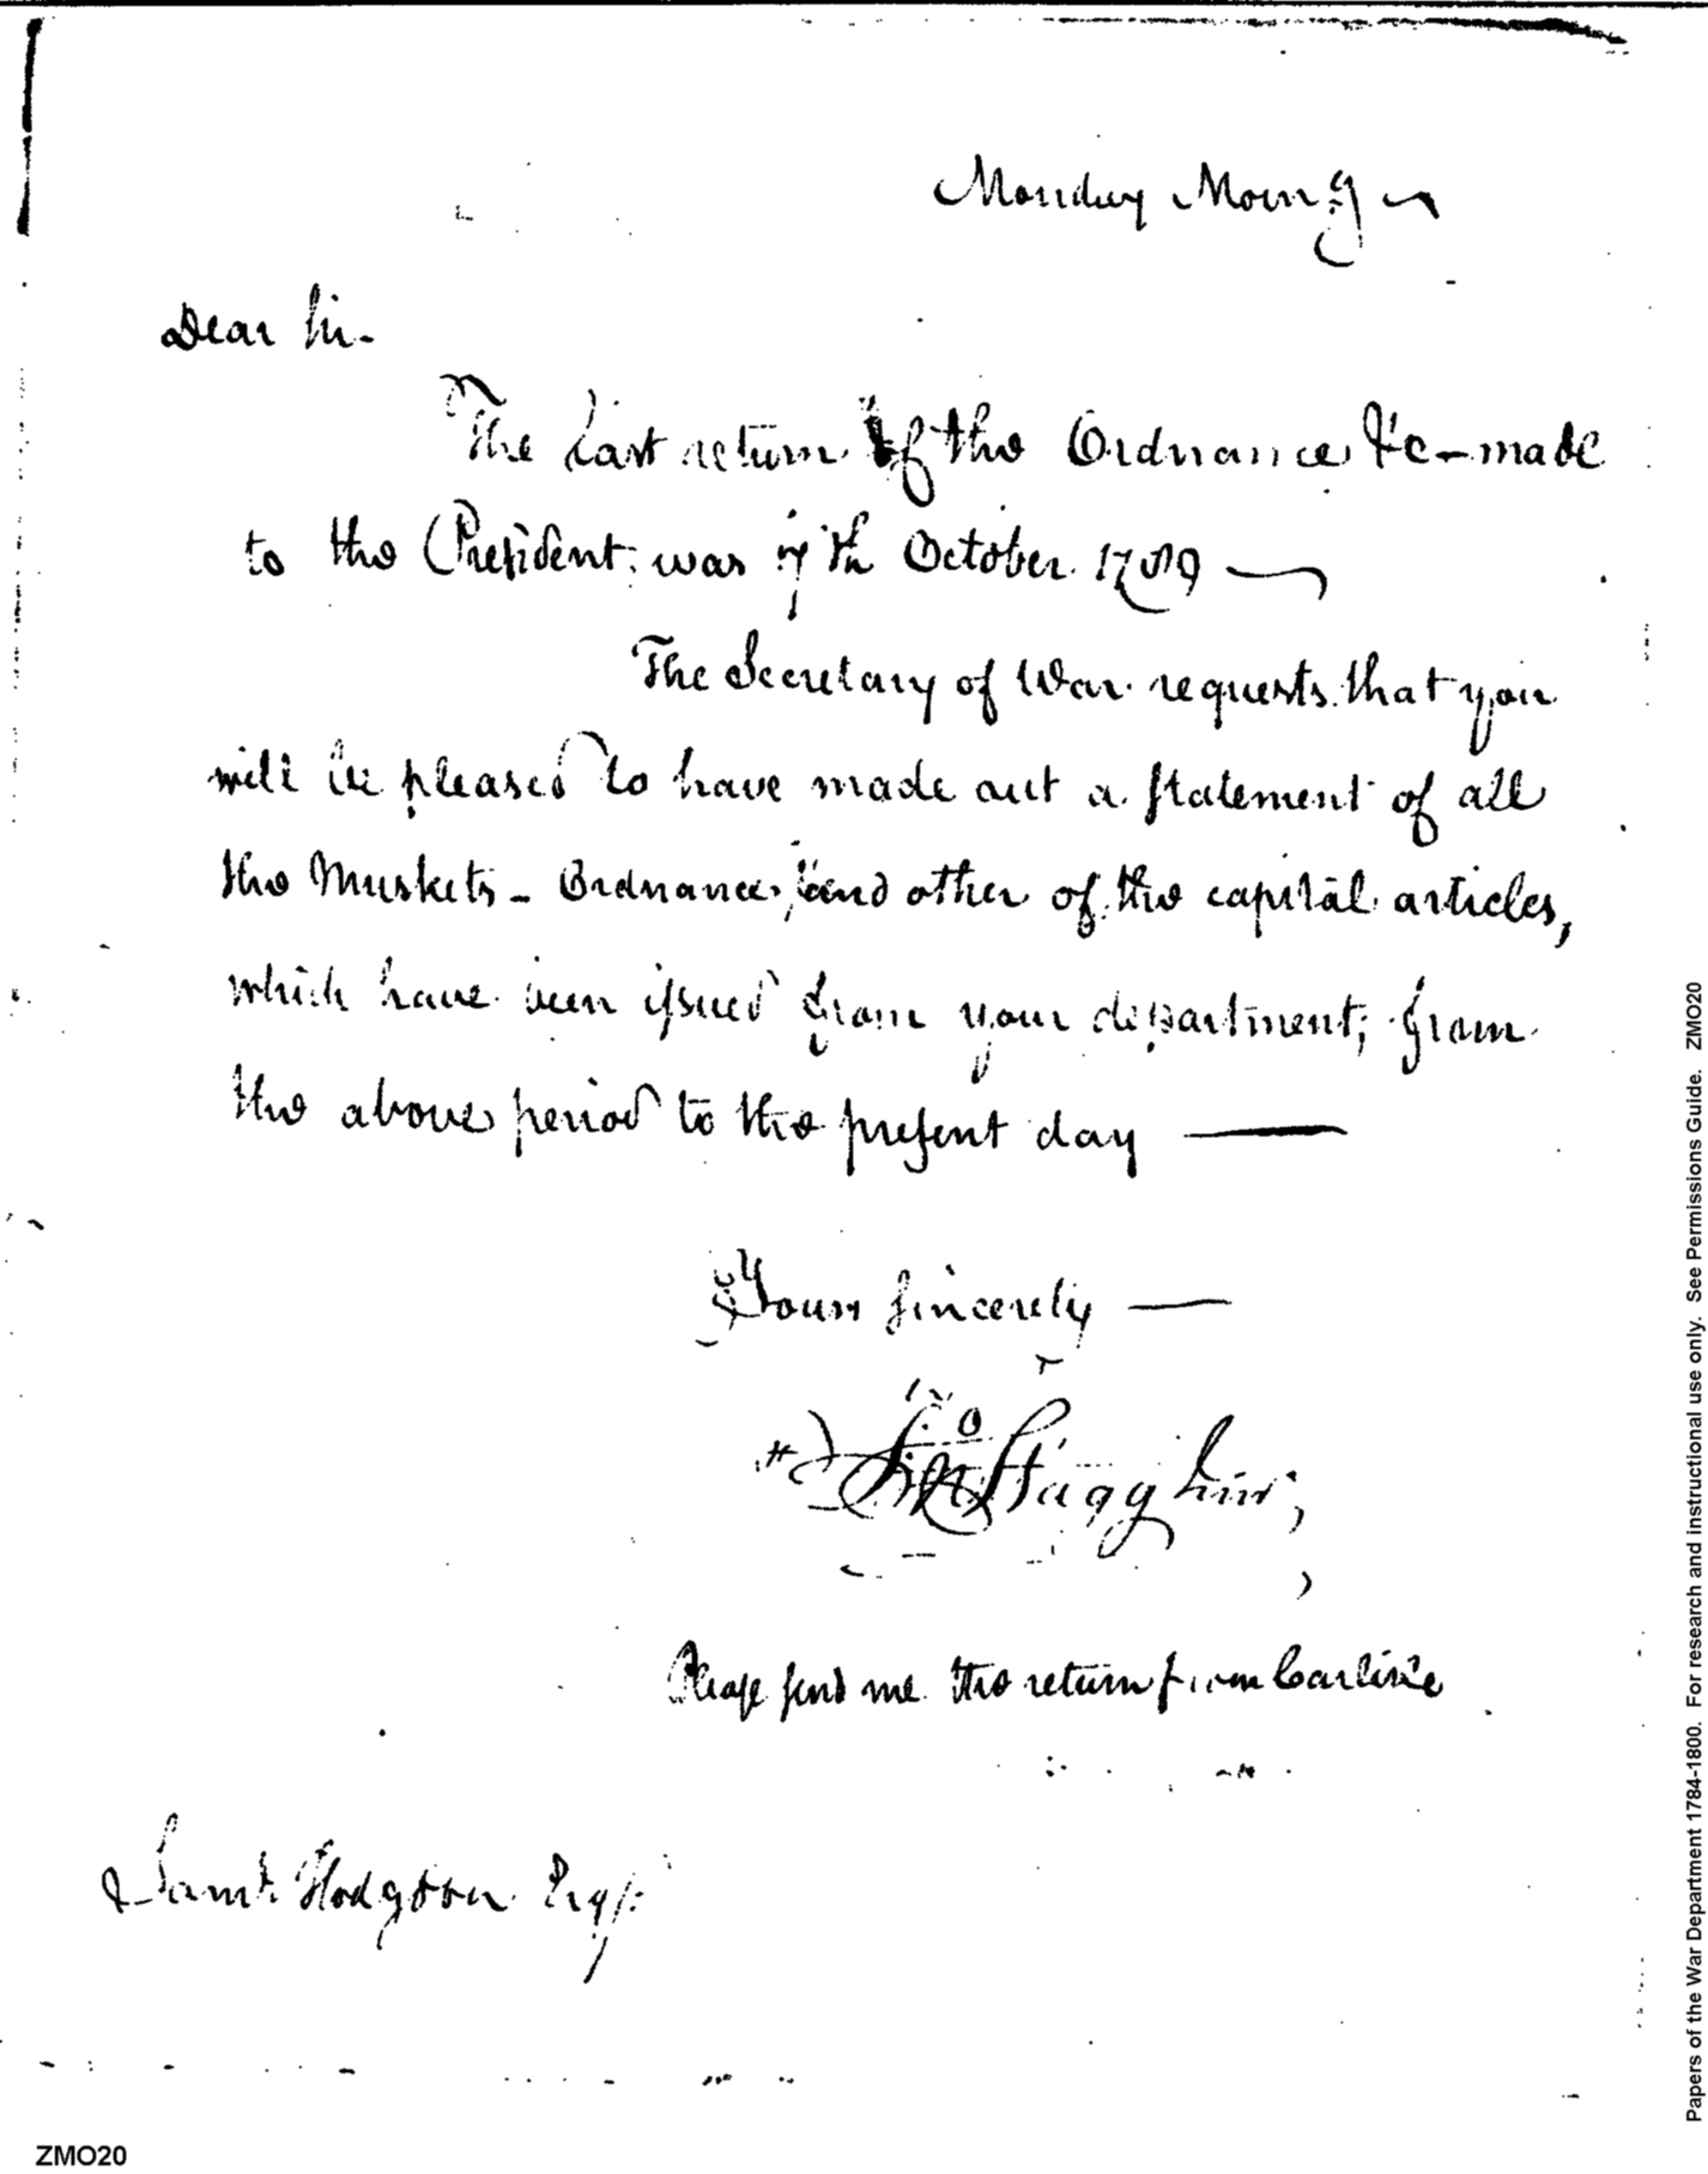 Monday Morn:g
Dear Sir-
The Last return of the Ordnance &c-made
to the President was 7th October 1789
The Secretary of War requests that you
will be pleased to have made out a statement of all
the Muskets - Ordnance, and other of the capital articles,
which have been issued from your department, from
the above period to the present day
Yours sincerely
Jno Stagg Junr,
Please send me the return from Carlisle
Saml. Hodgdon Esqr.
ZMO20
Papers of the War Department 1784-1800. For research and instructional use only. See Permissions Guide. ZMO20